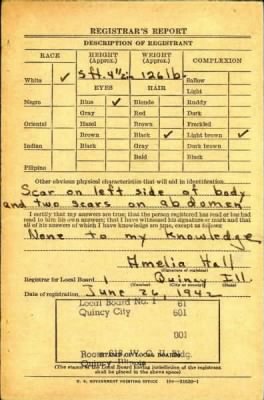 REGISTRAR'S REPORT
DESCRIPTION OF REGISTRANT
RACE HEIGHT (Approx.) WEIGHT (Approx.) COMPLEXION
White ✓ 5 ft. 4½ in 126 lb. Sallow
EYES HAIR Light
Negro Blue ✓ Blonde Ruddy
Gray Red Dark
Oriental Hazel Brown Freckled
Brown Black ✓ Light brown ✓
Indian Black Gray Dark brown
Bald Black
Filipino
Other obvious physical characteristics that will aid in identification.
Scar on left side of body
and two scars on abdomen
I certify that my answers are true; that the person registered has read or has had
read to him his own answers; that I have witnessed his signature or mark and that
all of his answers of which I have knowledge are true, except as follows:
None to my Knowledge
Amelia Hall
(Signature of registrar)
Registrar for Local Board 1 Quincy Ill.
(Number) (City or county) (State)
Date of registration June 26, 1942
Local Board No. 1 61
Quincy City 001
001
Room W. Bldg.
(STAMP OF LOCAL BOARD)
Quincy Illinois
(The stamp of the Local Board having jurisdiction of the registrant
shall be placed in the above space)
U. S. GOVERNMENT PRINTING OFFICE 16—21630-1